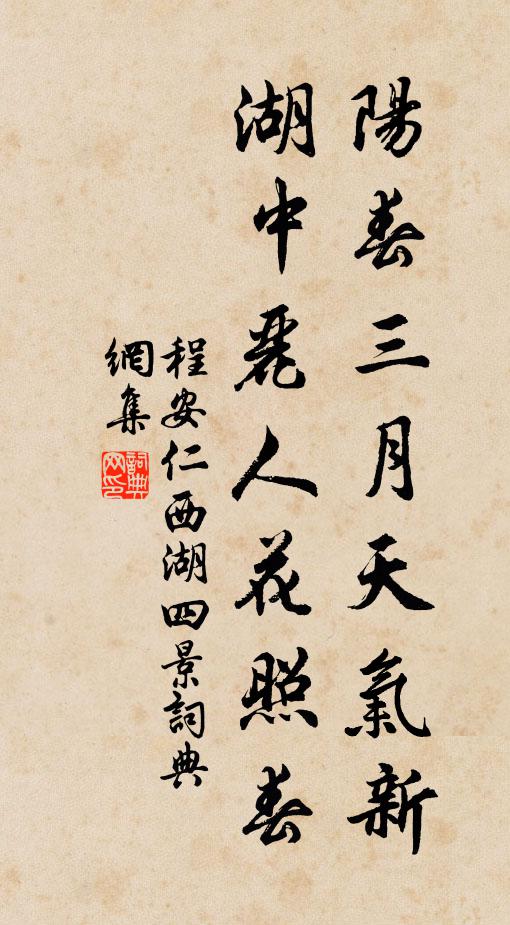 陽春三月天氣新
湖中麗人花照春
程安仁西湖四景詞典
網集
詞典
网印